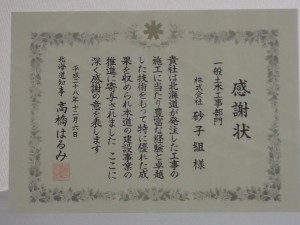 感謝状
一般土木工事部門
株式会社 砂子組 様
貴社は北海道が発注した工事の
施工に当たり豊富な経験と卓越
した技術をもって特に優れた成
果を収められ本道の建設事業の
推進に寄与されました ここに
深く感謝の意を表します
平成二十八年十一月六日
北海道知事 高橋はるみ